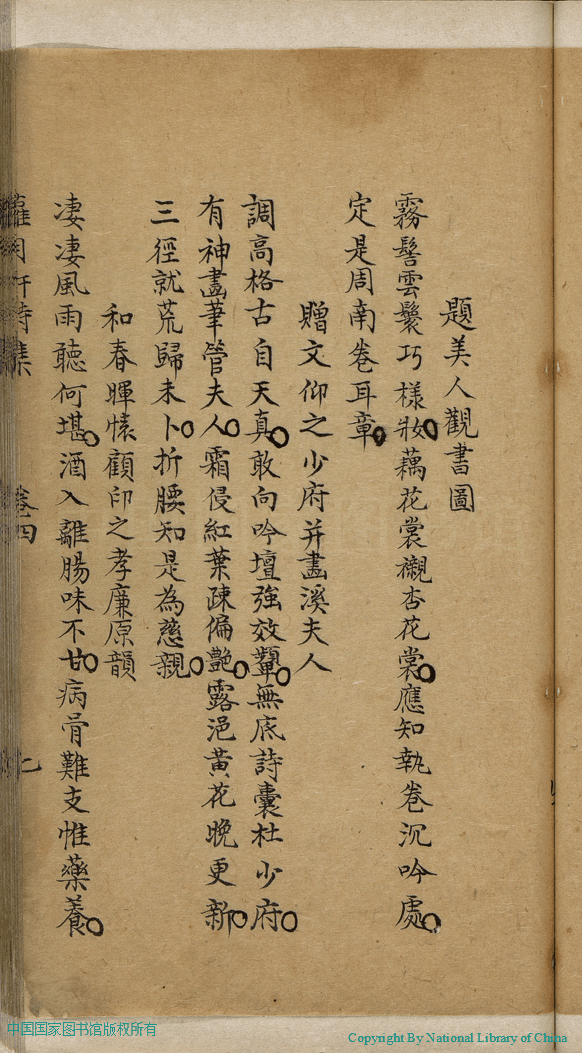 題美人觀書圖
霧髻雲鬟巧樣妝藕花裳襯杏花裳應知執卷沉吟處
定是周南卷耳章
贈文仰之少府并畫溪夫人
調高格古自天真敢向吟壇強效顰無底詩囊杜少府
有神畫筆管夫人霜侵紅葉疎偏艷露浥黃花晚更新
三徑就荒歸未卜折腰知是為慈親
和春暉懷顧卬之孝廉原韻
凄凄風雨聽何堪酒入離腸味不甘病骨難支惟藥養
詩集
卷四
七
中国国家图书馆版权所有
Copyright By National Library of China